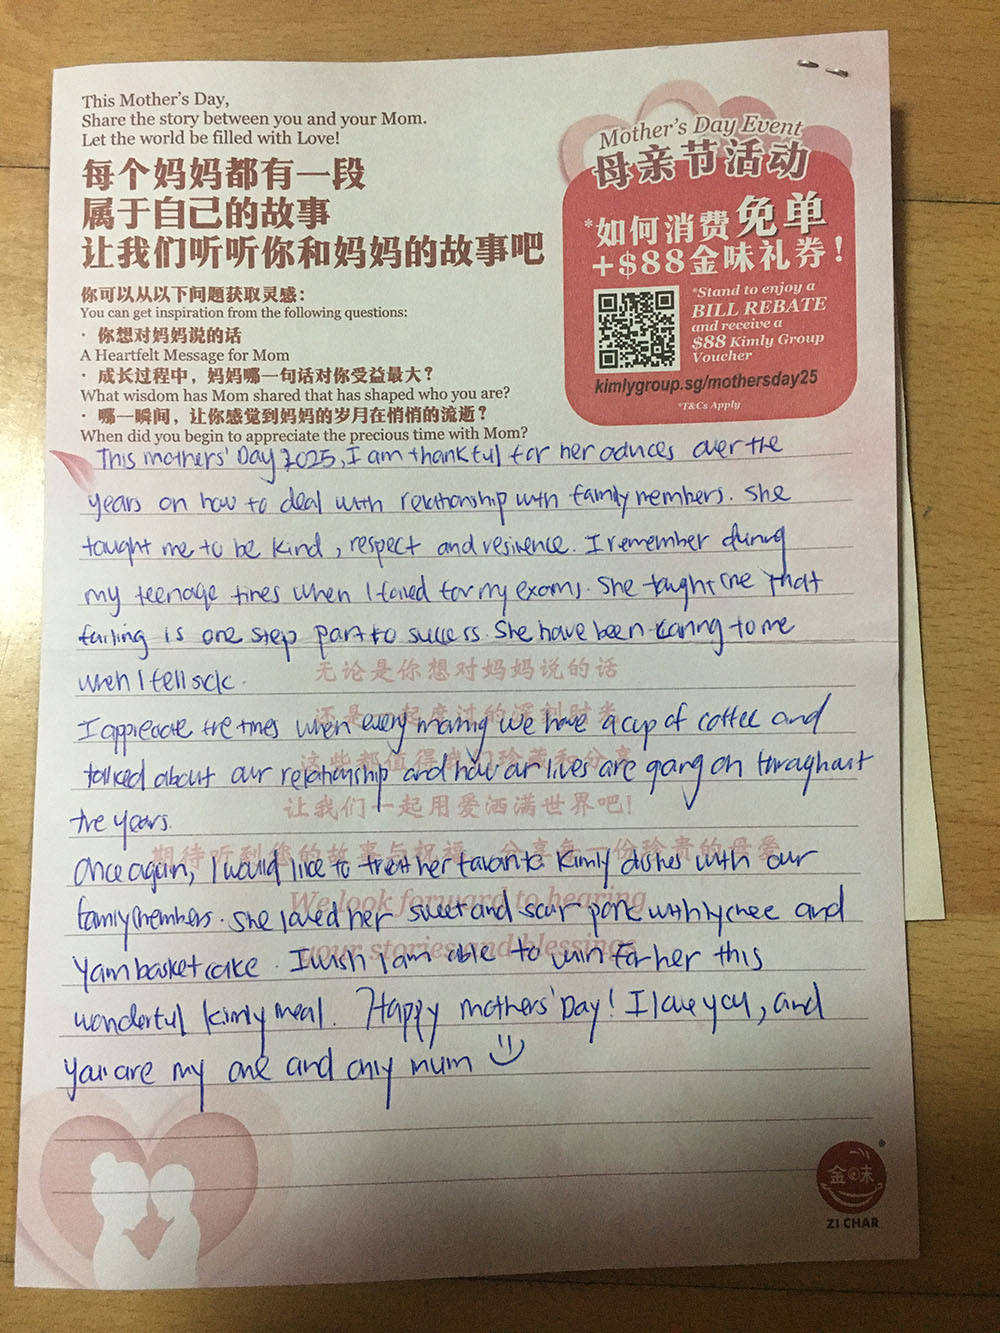 This Mother's Day,
Share the story between you and your Mom.
Let the world be filled with Love!
每个妈妈都有一段
属于自己的故事
让我们听听你和妈妈的故事吧
你可以从以下问题获取灵感：
You can get inspiration from the following questions:
· 你想对妈妈说的话
A Heartfelt Message for Mom
· 成长过程中，妈妈哪一句话对你受益最大？
What wisdom has Mom shared that has shaped who you are?
· 哪一瞬间，让你感觉到妈妈的岁月在悄悄的流逝？
When did you begin to appreciate the precious time with Mom?
Mother's Day Event
母亲节活动
*如何消费免单
+$88金味礼券！
*Stand to enjoy a
BILL REBATE
and receive a
$88 Kimly Group
Voucher
kimlygroup.sg/mothersday25
*T&Cs Apply
This mothers' Day 2025, I am thankful for her advices over the
years on how to deal with relationship with family members. She
taught me to be kind, respect and resilience. I remember during
my teenage times when I failed for my exams. She taught me that
failing is one step part to success. She have been caring to me
when I fell sick.
I appreciate the times when every morning we have a cup of coffee and
talked about our relationship and how our lives are going on throughout
the years.
Once again, I would like to treat her favorite Kimly dishes with our
family members. She loved her sweet and sour pork with lychee and
Yam basket cake. I wish I am able to win for her this
wonderful kimly meal. Happy mothers' Day! I love you, and
you are my one and only mum
无论是你想对妈妈说的话
还是一起度过的深刻时光
这些都值得我们珍藏和分享
让我们一起用爱洒满世界吧!
期待听到您的故事与祝福，分享每一份珍贵的母爱
We look forward to hearing
your stories and blessings
金味
ZI CHAR